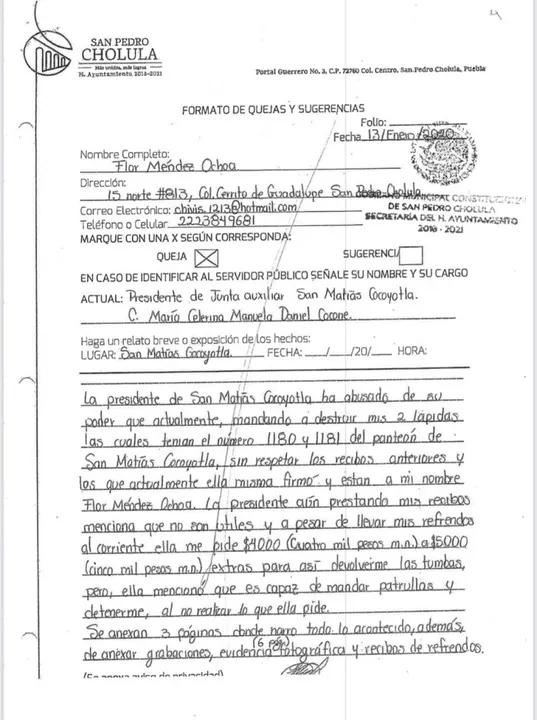 SAN PEDRO
CHOLULA
H. Ayuntamiento 2018-2021
Portal Guerrero No. 3, C.P. 72760 Col. Centro, San Pedro Cholula, Puebla
FORMATO DE QUEJAS Y SUGERENCIAS
Folio:
Fecha 13/Enero/2020
Nombre Completo:
Flor Méndez Ochoa.
Dirección:
15 norte #813, Col. Cerrito de Guadalupe San Pedro Cholula
MUNICIPAL CONSTITUCIONAL
Correo Electrónico: chivis.1213@hotmail.com
DE SAN PEDRO CHOLULA
Teléfono o Celular 2223849681
SECRETARÍA DEL H. AYUNTAMIENTO
2018 - 2021
MARQUE CON UNA X SEGÚN CORRESPONDA:
QUEJA X SUGERENCI
EN CASO DE IDENTIFICAR AL SERVIDOR PÚBLICO SEÑALE SU NOMBRE Y SU CARGO
ACTUAL: Presidente de Junta auxiliar San Matías Cocoyotla.
C. María Celerina Manuela Daniel Cocone.
Haga un relato breve o exposición de los hechos:
LUGAR: San Matías Cocoyotla. FECHA: __/__/20/__ HORA:
La presidente de San Matías Cocoyotla ha abusado de su
poder que actualmente, mandando a destruir mis 2 lápidas
las cuales tenian el número 1180 y 1181 del panteón de
San Matías Cocoyotla, sin respetar los recibos anteriores y
los que actualmente ella misma firmo y estan a mi nombre
Flor Méndez Ochoa. La presidente aún prestando mis recibos
menciona que no son útiles y a pesar de llevar mis refrendos
al corriente ella me pide $4000 (Cuatro mil pesos m.n.) a $5000
(cinco mil pesos m.n.) extras para así devolverme las tumbas,
pero, ella mencionó que es capaz de mandar patrullas y
detenerme, al no realizar lo que ella pide.
Se anexan 3 páginas donde narro todo lo acontecido, además,
de anexar grabaciones, evidencia fotográfica y recibos de refrendos.